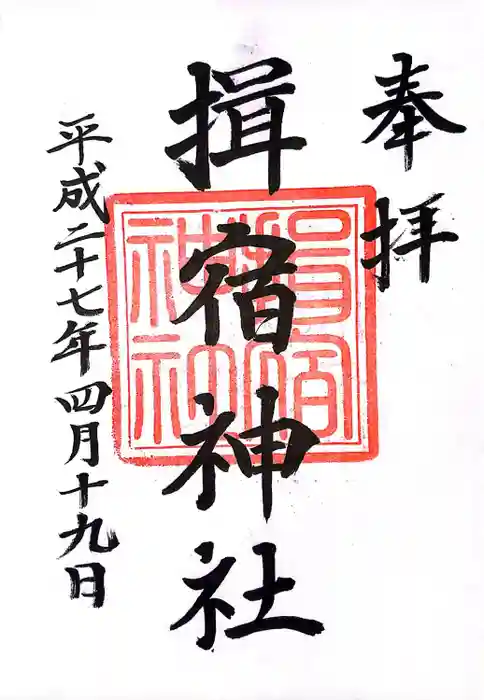 奉拝
揖宿神社
平成二十七年四月十九日
揖宿神社